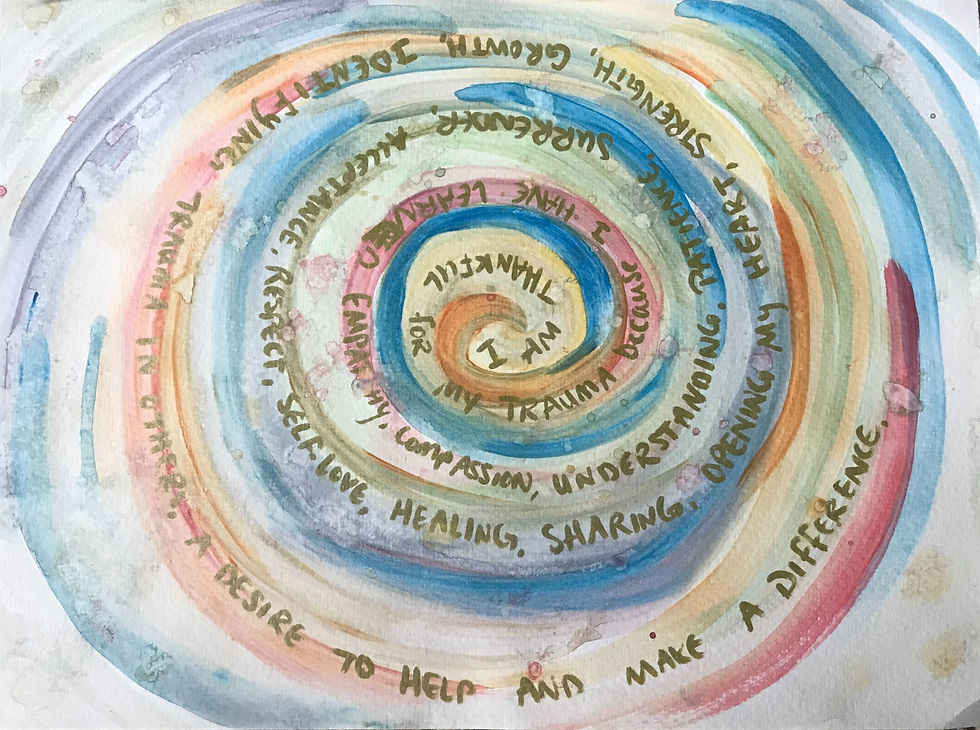 I AM THANKFUL for MY TRAUMA because I HAVE LEARNED EMPATHY, COMPASSION, UNDERSTANDING, PATIENCE, SURRENDER, ACCEPTANCE, RESPECT, SELF-LOVE, HEALING, SHARING, OPENING MY HEART, STRENGTH, GROWTH, IDENTIFYING TRAUMA IN OTHERS, A DESIRE TO HELP AND MAKE A DIFFERENCE.